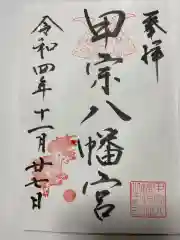 奉拝
甲宗八幡宮
令和四年十一月廿七日